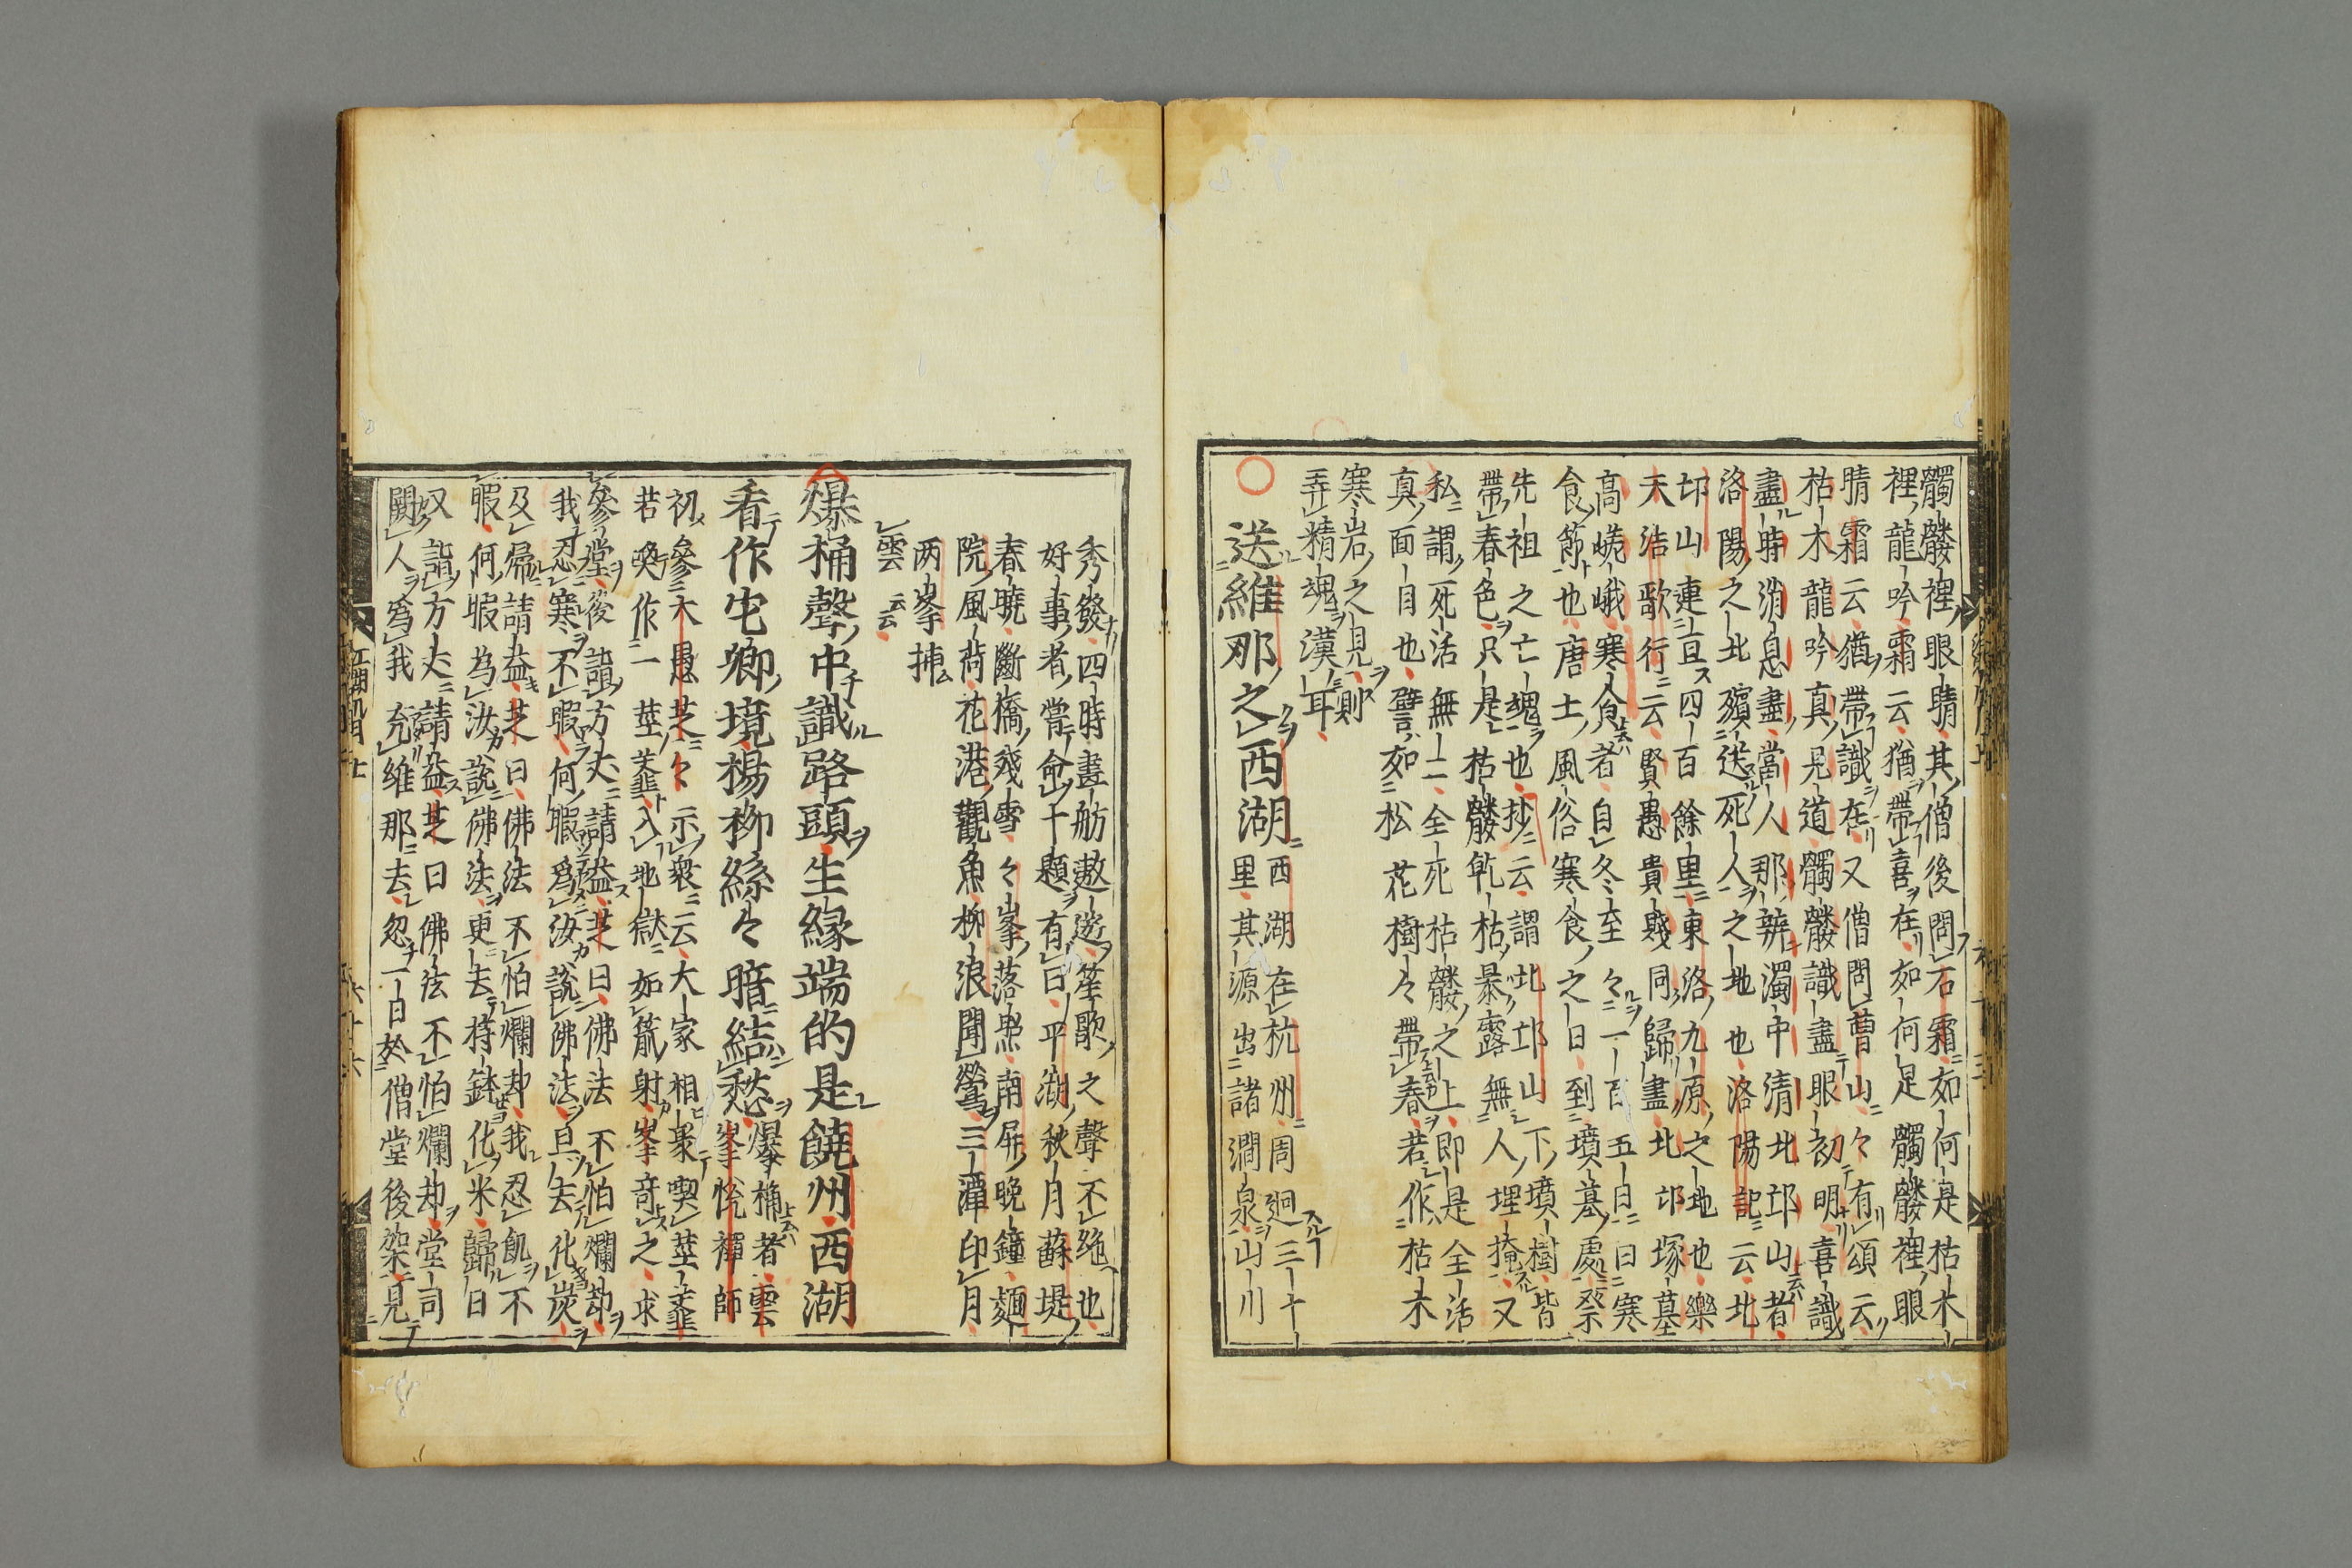 髑髏裡眼睛其僧後問石霜如何是枯木
裡龍吟霜云猶帶喜在如何是髑髏裡眼
睛霜云猶帶識在又僧問曹山々有頌云
枯木龍吟真見道髑髏識盡眼初明喜識
盡時消息盡當人那辨濁中清北邙山者
洛陽之北殯送死人之地也洛陽記云北
邙山連亘四百餘里東洛九原之地也樂
天浩歌行云賢愚貴賤同歸盡北邙塚墓
高嵯峨寒食者自冬至々一百五日曰寒
食節也唐土風俗寒食之日到墳墓處祭
先祖之亡魂也抄云謂北邙山下墳樹皆
帶春色只是枯髏乾枯暴露無人埋掩又
私謂死活無一全死枯髏之上即是全活
真面目也譬如松花樹々帶春若作枯木
寒岩之見則
弄精魂漢耳
送維那之西湖
西湖在杭州周廻三十
里其源出諸澗泉山川
秀發四時畫舫遨遊笙歌之聲不絶也
好事者嘗命十題有曰平湖秋月蘇堤
春曉斷橋殘雪々峯落照南屏晚鐘麯
院風荷花港觀魚柳浪聞鶯三潭印月
両峯挿
雲云云
爆桶聲中識路頭生縁端的是饒州西湖
看作宅卿境楊柳絲々暗結愁
爆桶者雲
峯悅禪師
初參大愚芝々示衆云大家相聚喫莖虀
若喚作一莖虀入地獄如箭射峯奇之求
參堂後詣方丈請益芝曰佛法不怕爛却
我忍寒不暇何暇爲汝說佛法且去化炭
及歸請益芝曰佛法不怕爛却我忍飢不
暇何暇為汝說佛法更去持鉢化米歸日
又詣方丈請益芝曰佛法不怕爛却堂司
闕人爲我充維那去忽一日於僧堂後架見